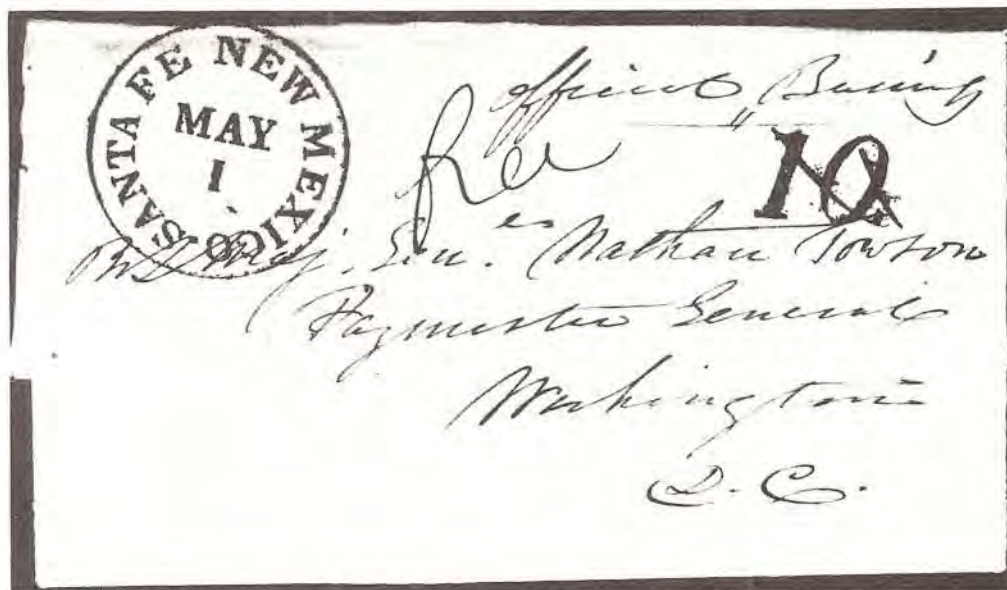 SANTA FE NEW MEXICO
MAY
1
Official Business
Free
10
Bvt Maj. Gen. Nathan Towson
Paymaster General
Washington
D. C.